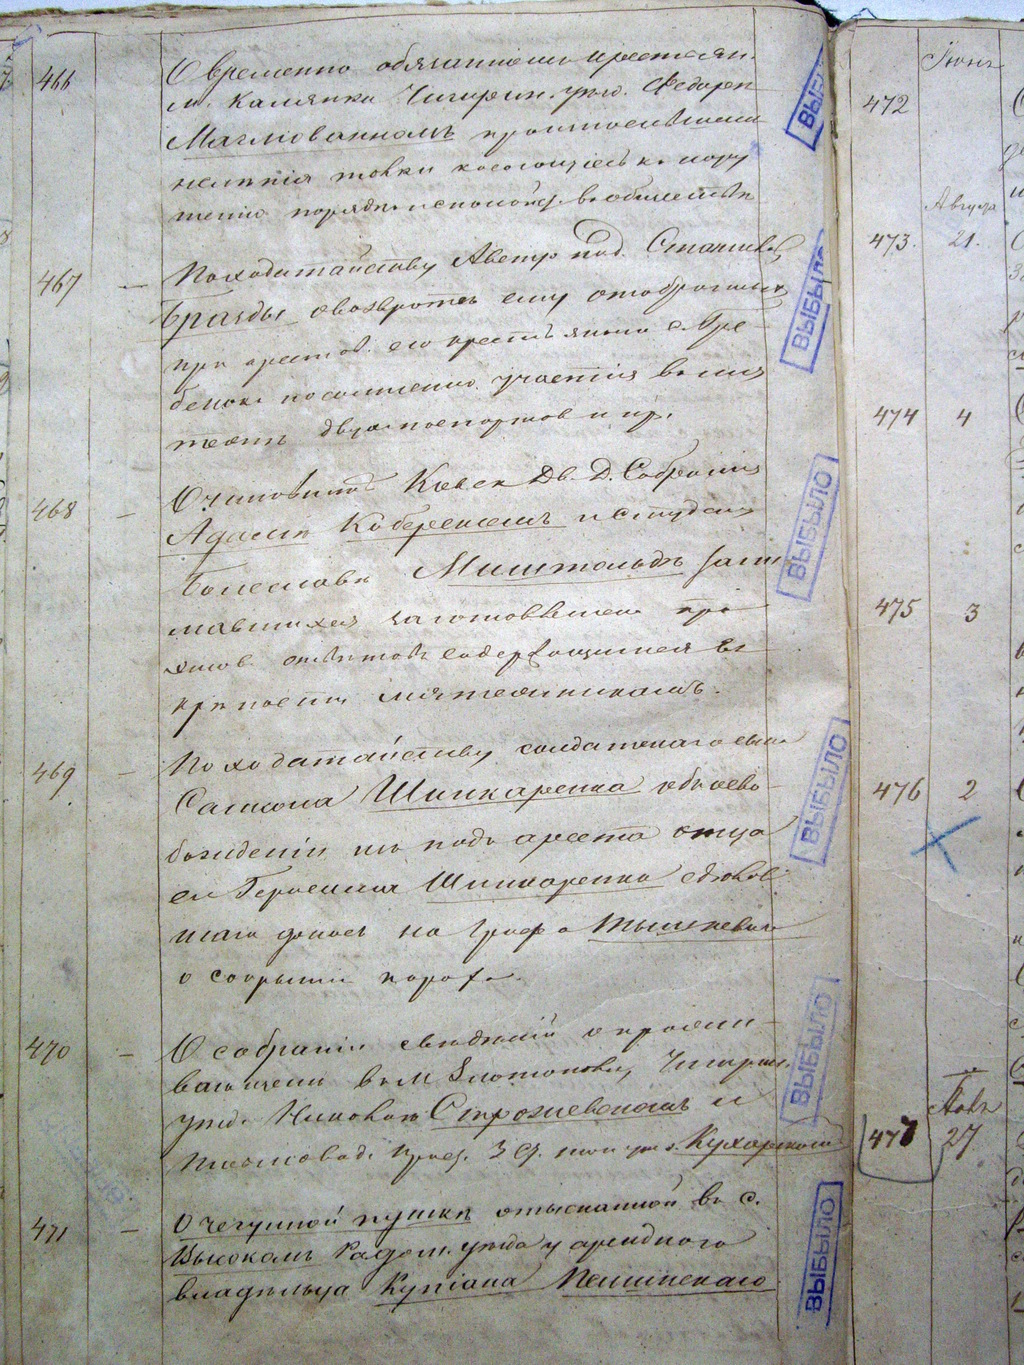 466
О временно обязанномъ крестьян.
м. Калянки Чигирин. уезд. Федоре
Маглюванномъ произносившемъ
нелепыя толки клонящіеся къ нару
шенію порядка и спокойст. въ обществе
467 — По ходатайству Австр. под. Станислав
Бранды о возврате ему отобранных
при арестов. его крестьянами с. Гре
бенки по сомненію участія в мя
тежи двух паспортов и пр.
468 — О чиновнике Киевск Дв. Д. Собранія
Адаме Коберскомъ и студенте
Болеславе Миштольдъ зани
мавшихся заготовленіем
ответовъ содержащимся въ
крепости мятежникамъ.
469 — По ходатайству солдатскаго сына
Самсона Шинкаренка объ осво
божденіи изъ подъ ареста отца
его Герасима Шинкаренка сделав
шаго доносъ на графа Тышкевича
о сокрытіи пороха.
470 — О собраніи сведеній о прожи
вающем в м. Златополе, Чигирин.
уезд. Чиновнике Строжевскомъ и
Кухарском
471 — О чугунной пушке отысканной въ с.
Высокомъ Радом. уезда у арендного
владельца Купріана Пешинскаго
ВЫБЫЛО
ВЫБЫЛО
ВЫБЫЛО
ВЫБЫЛО
ВЫБЫЛО
ВЫБЫЛО
Іюнь
472
Августа
473. 21.
474 4
475 3
476 2
477 27